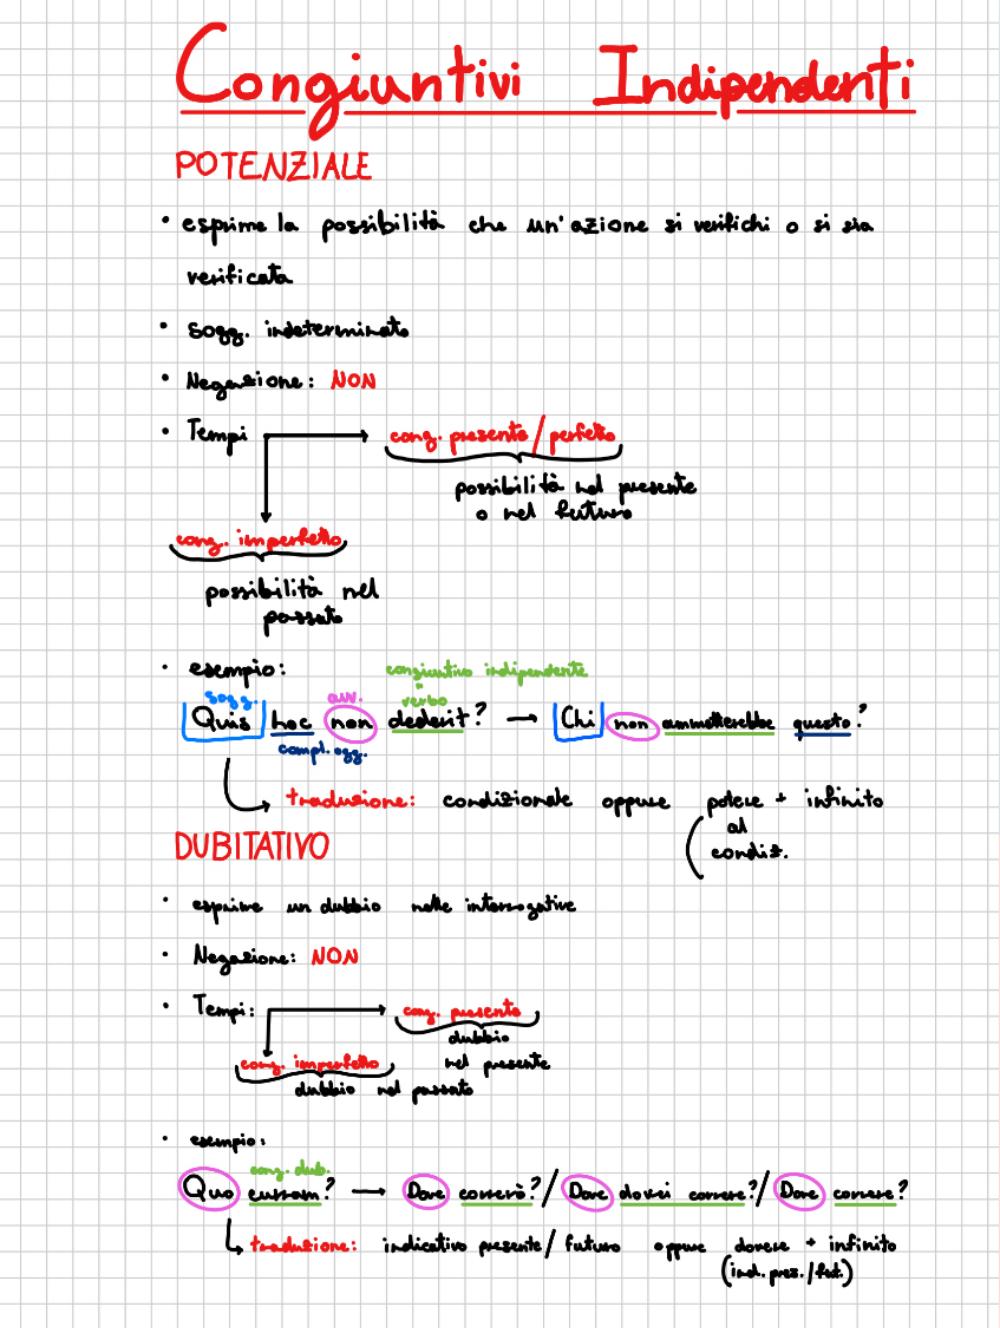 Congiuntivi Indipendenti
POTENZIALE
• esprime la possibilità che un'azione si verifichi o si sia
verificata
• sogg. indeterminato
• Negazione: NON
• Tempi
cong. presente / perfetto
possibilità nel presente
o nel futuro
cong. imperfetto
possibilità nel
passato
• esempio:
congiuntivo indipendente
sogg. avv. verbo
Quis hoc non dederit? → Chi non ammetterebbe questo?
compl. ogg.
traduzione: condizionale oppure potere + infinito
al
condiz.
DUBITATIVO
• esprime un dubbio nelle interrogative
• Negazione: NON
• Tempi:
cong. presente
dubbio
nel presente
cong. imperfetto
dubbio nel passato
• esempio:
cong. dub.
Quo curram? → Dove correrò? / Dove dovrei correre? / Dove correre?
traduzione: indicativo presente / futuro oppure dovere + infinito
(ind. pres. / fut.)